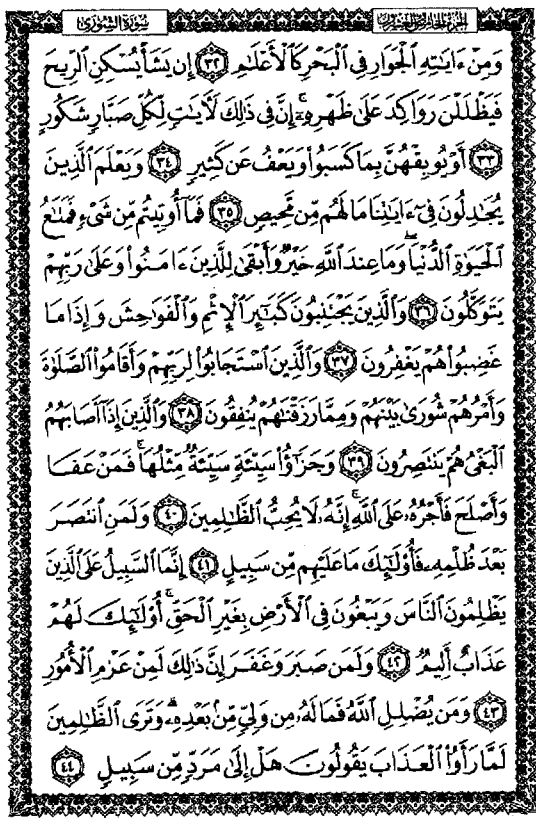 الجزء الخامس والعشرون
سورة الشورى
وَمِنْ ءَايَٰتِهِ ٱلْجَوَارِ فِى ٱلْبَحْرِ كَٱلْأَعْلَٰمِ ٣٢ إِن يَشَأْ يُسْكِنِ ٱلرِّيحَ
فَيَظْلَلْنَ رَوَاكِدَ عَلَىٰ ظَهْرِهِۦٓ ۚ إِنَّ فِى ذَٰلِكَ لَءَايَٰتٍ لِّكُلِّ صَبَّارٍ شَكُورٍ
٣٣ أَوْ يُوبِقْهُنَّ بِمَا كَسَبُوا۟ وَيَعْفُ عَن كَثِيرٍ ٣٤ وَيَعْلَمَ ٱلَّذِينَ
يُجَٰدِلُونَ فِىٓ ءَايَٰتِنَا مَا لَهُم مِّن مَّحِيصٍ ٣٥ فَمَآ أُوتِيتُم مِّن شَىْءٍ فَمَتَٰعُ
ٱلْحَيَوٰةِ ٱلدُّنْيَا ۖ وَمَا عِندَ ٱللَّهِ خَيْرٌ وَأَبْقَىٰ لِلَّذِينَ ءَامَنُوا۟ وَعَلَىٰ رَبِّهِمْ
يَتَوَكَّلُونَ ٣٦ وَٱلَّذِينَ يَجْتَنِبُونَ كَبَٰٓئِرَ ٱلْإِثْمِ وَٱلْفَوَٰحِشَ وَإِذَا مَا
غَضِبُوا۟ هُمْ يَغْفِرُونَ ٣٧ وَٱلَّذِينَ ٱسْتَجَابُوا۟ لِرَبِّهِمْ وَأَقَامُوا۟ ٱلصَّلَوٰةَ
وَأَمْرُهُمْ شُورَىٰ بَيْنَهُمْ وَمِمَّا رَزَقْنَٰهُمْ يُنفِقُونَ ٣٨ وَٱلَّذِينَ إِذَآ أَصَابَهُمُ
ٱلْبَغْىُ هُمْ يَنتَصِرُونَ ٣٩ وَجَزَٰٓؤُا۟ سَيِّئَةٍ سَيِّئَةٌ مِّثْلُهَا ۖ فَمَنْ عَفَا
وَأَصْلَحَ فَأَجْرُهُۥ عَلَى ٱللَّهِ ۚ إِنَّهُۥ لَا يُحِبُّ ٱلظَّٰلِمِينَ ٤٠ وَلَمَنِ ٱنتَصَرَ
بَعْدَ ظُلْمِهِۦ فَأُو۟لَٰٓئِكَ مَا عَلَيْهِم مِّن سَبِيلٍ ٤١ إِنَّمَا ٱلسَّبِيلُ عَلَى ٱلَّذِينَ
يَظْلِمُونَ ٱلنَّاسَ وَيَبْغُونَ فِى ٱلْأَرْضِ بِغَيْرِ ٱلْحَقِّ ۚ أُو۟لَٰٓئِكَ لَهُمْ
عَذَابٌ أَلِيمٌ ٤٢ وَلَمَن صَبَرَ وَغَفَرَ إِنَّ ذَٰلِكَ لَمِنْ عَزْمِ ٱلْأُمُورِ
٤٣ وَمَن يُضْلِلِ ٱللَّهُ فَمَا لَهُۥ مِن وَلِىٍّ مِّنۢ بَعْدِهِۦ ۗ وَتَرَى ٱلظَّٰلِمِينَ
لَمَّا رَأَوُا۟ ٱلْعَذَابَ يَقُولُونَ هَلْ إِلَىٰ مَرَدٍّ مِّن سَبِيلٍ ٤٤